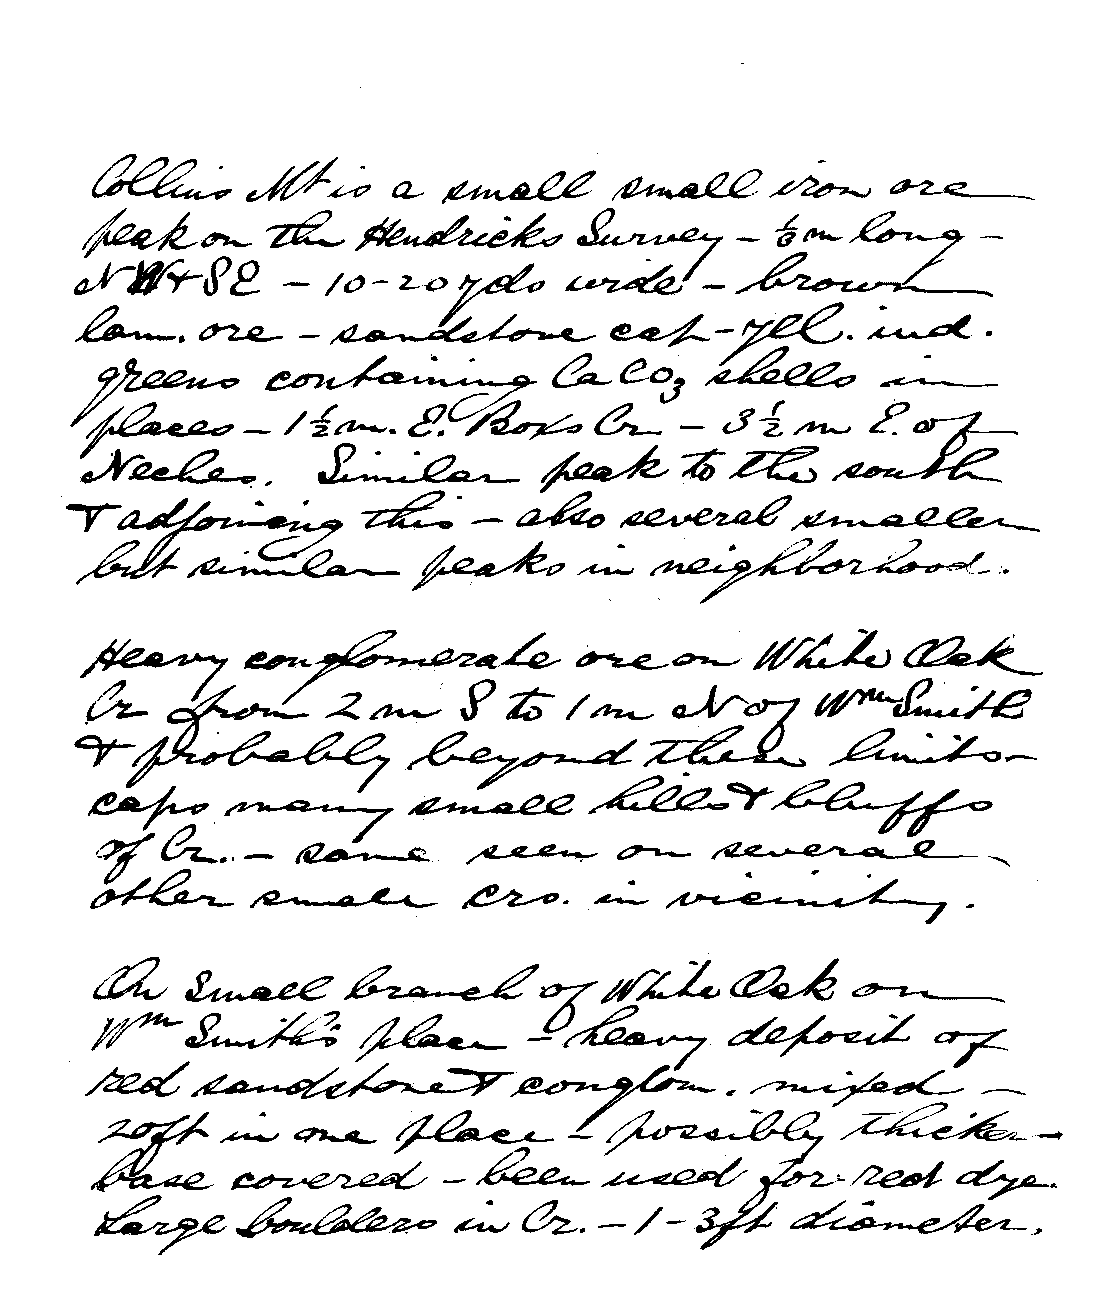 Collins Mt is a small small iron ore
peak on the Hendricks Survey - ½ m long -
NW & SE - 10-20 yds wide - brown
lam. ore - sandstone cap - yel. ind.
greens containing CaCO3 shells in
places - 1½ m. E. Boxs Cr - 3½ m E. of
Neches. Similar peak to the south
& adjoining this - also several smaller
but similar peaks in neighborhood.
Heavy conglomerate ore on White Oak
Cr from 2 m S to 1 m N of Wm Smith
& probably beyond these limits -
caps many small hills & bluffs
of Cr. - same seen on several
other small crs. in vicinity.
On small branch of White Oak on
Wm Smith's place - heavy deposit of
red sandstone & conglom. mixed -
20ft in one place - possibly thicker -
base covered - been used for red dye.
Large boulders in Cr. - 1 - 3ft diameter.